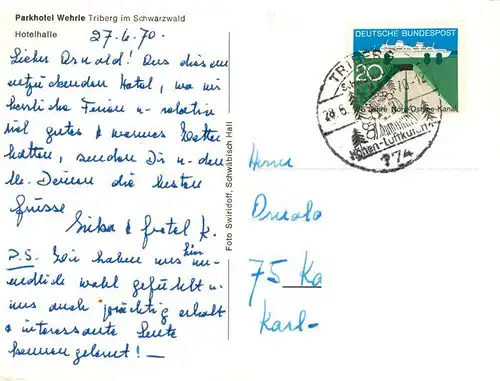 Parkhotel Wehrle Triberg im Schwarzwald
Hotelhalle
27.6.70.
Lieber Oswald! Aus diesem
entzückenden Hotel, wo wir
herrliche Ferien u. relativ
viel gutes & warmes Wetter
hatten, senden Dir u. den
Deinen die besten
Grüsse
P.S. Wir haben uns hier un-
endlich wohl gefühlt u.
uns auch prächtig erholt
& interessante Leute
kennen gelernt! —
Foto Swiridoff, Schwäbisch Hall
DEUTSCHE BUNDESPOST
20
Jahre Nord-Ostsee-Kanal
TRIBERG
Höhen-Luftkurort
Herrn
75 Ka
Karl-